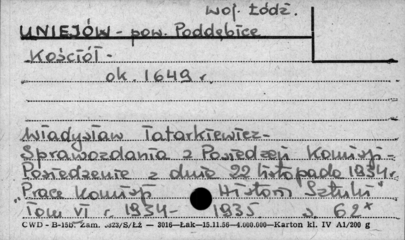 woj. Łódź.
UNIEJÓW - pow. Poddębice
Kościół -
ok. 1649 r.
Władysław Tatarkiewicz -
Sprawozdania z Posiedzeń Komisji -
Posiedzenie z dnia 22 listopada 1934 r.
"Prace Komisji Historii Sztuki"
Tom VI r. 1934 - 1935 s. 62*
CWD - B-150. Zam. S/Łż — 3016—Łak—15.11.56—4.000.000—Karton kl. IV A1/200 g